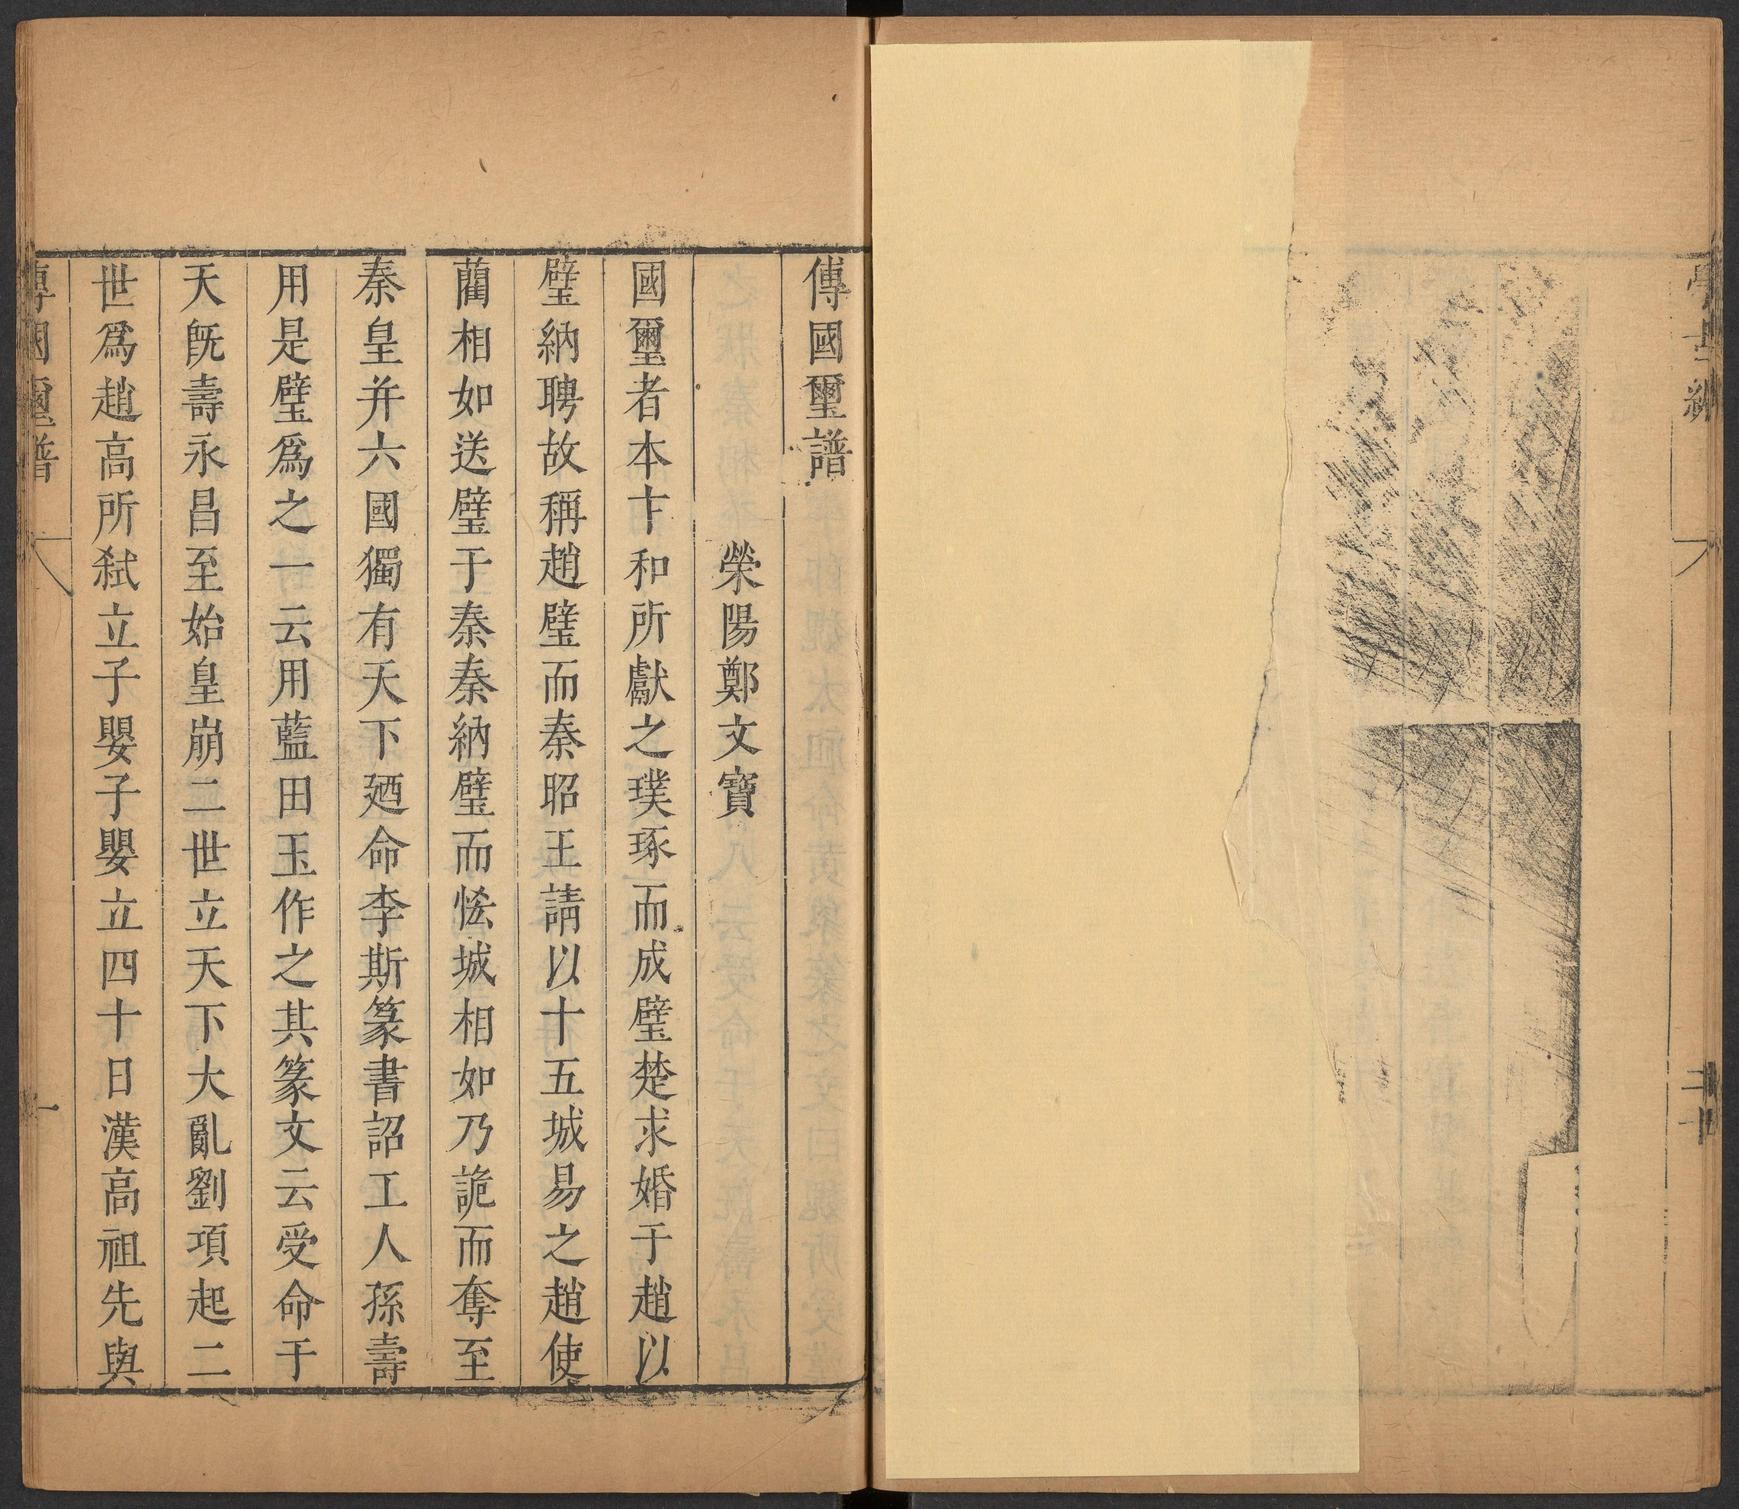 傳國璽譜
榮陽鄭文寶
國璽者本卞和所獻之璞琢而成璧楚求婚于趙以
璧納聘故稱趙璧而秦昭王請以十五城易之趙使
藺相如送璧于秦秦納璧而恡城相如乃詭而奪至
秦皇并六國獨有天下廼命李斯篆書詔工人孫壽
用是璧爲之一云用藍田玉作之其篆文云受命于
天旣壽永昌至始皇崩二世立天下大亂劉項起二
世爲趙高所弒立子嬰子嬰立四十日漢高祖先與
傳國璽譜
一